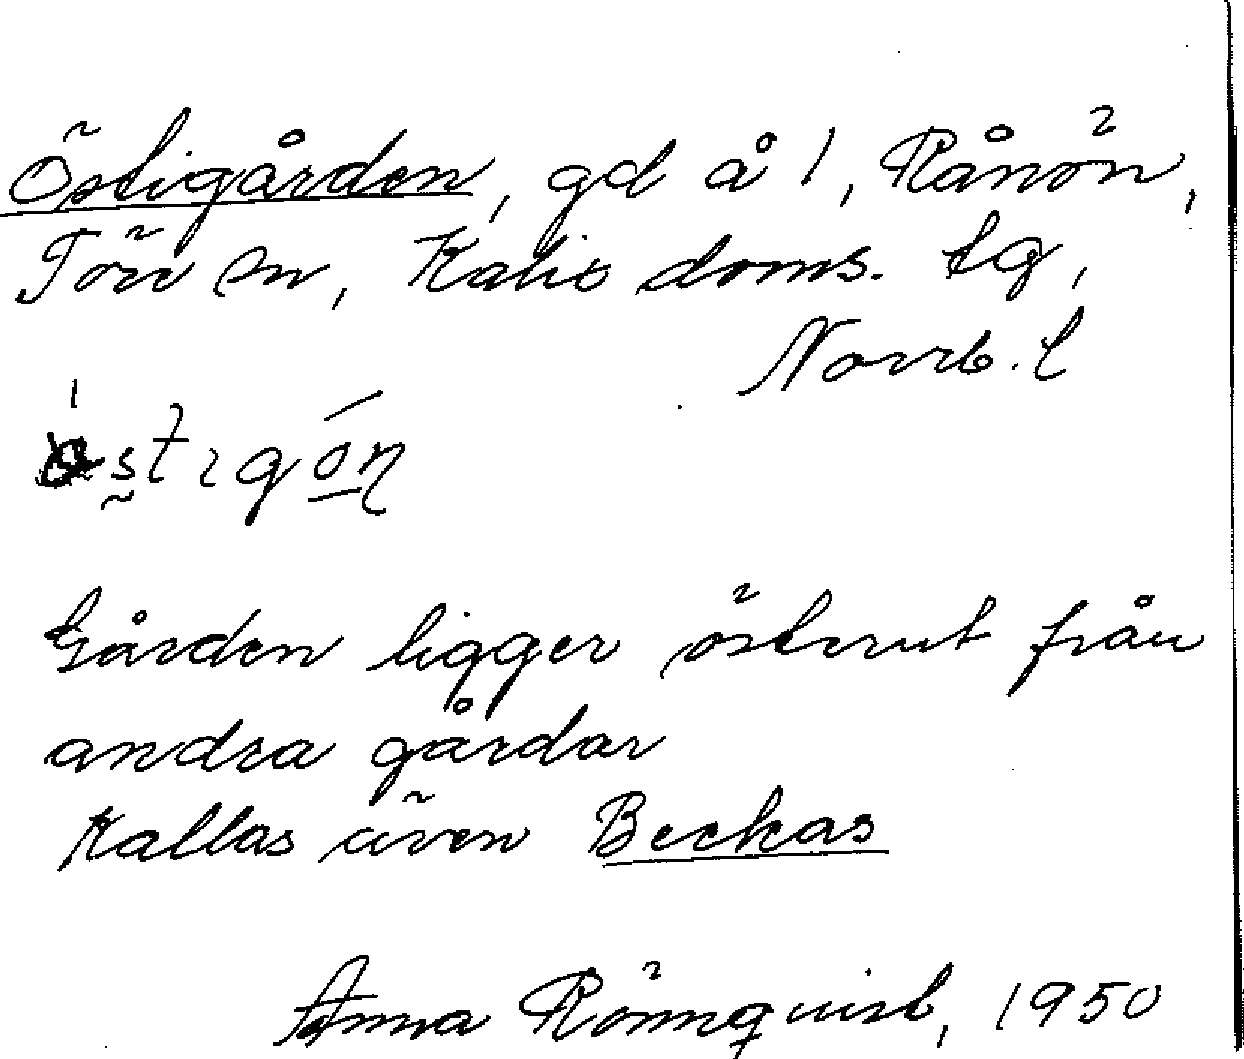 Östigården, gd å 1, Rånön,
Töre sn, Kalix doms. lg,
Norrb. l
Gården ligger österut från
andra gårdar
Kallas även Beckas
Anna Rönnquist, 1950